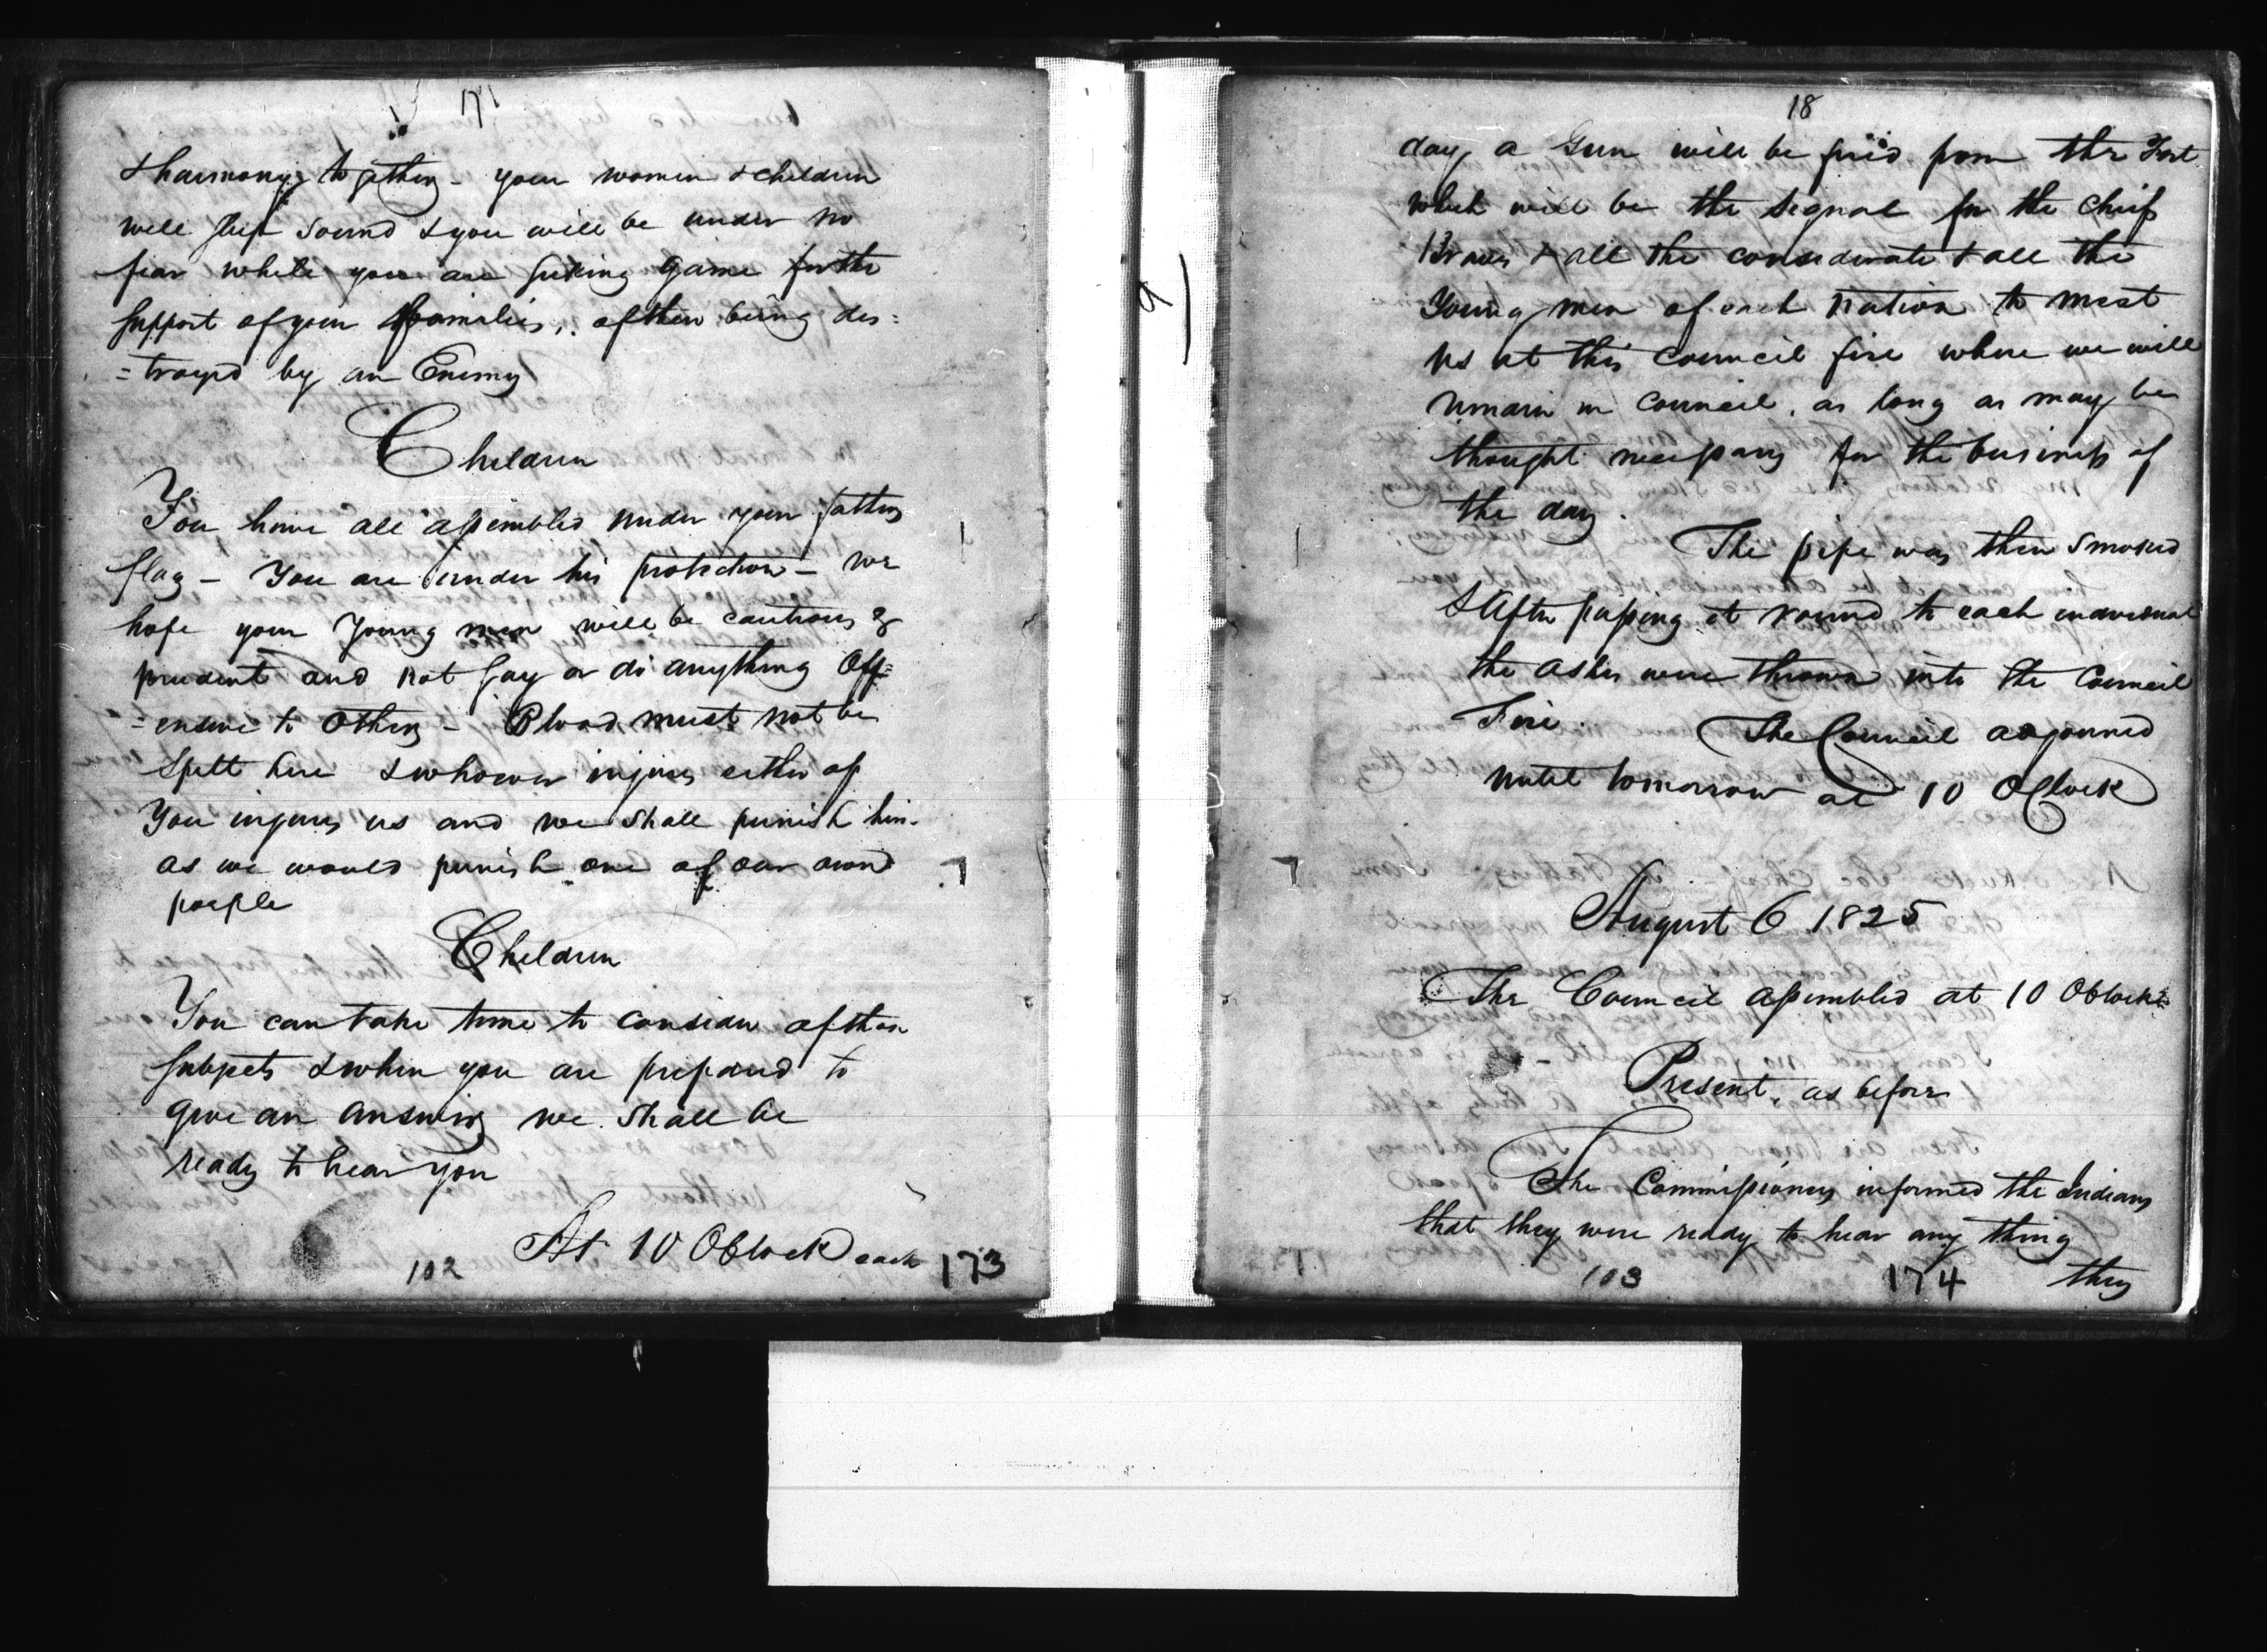 17
& harmony together - your women & children
will sleep sound & you will be under no
fear while you are seeking game for the
support of your families, of their being des=
=troyed by an Enemy
Children
You have all assembled under your fathers
flag - You are under his protection - we
hope your Young men will be cautious &
prudent and not say or do anything Off=
=ensive to Others - Blood must not be
Spilt here & whoever injures either of
You injures us and we shall punish him
as we would punish one of our own
people
Children
You can take time to consider of these
subjects & when you are prepared to
give an answer we shall be
ready to hear you
At 10 OClock each
102
173
18
day a Gun will be fired from the Fort
which will be the signal for the chiefs
Braves & all the considerate & all the
Young men of each nation to meet
us at this council fire where we will
remain in council, as long as may be
thought necessary for the business of
the day.
The pipe was then Smoked
& After passing it round to each individual
the ashes were thrown into the Council
Fire.
The Council adjourned
until tomorrow at 10 OClock
August 6 1825
The Council assembled at 10 OClock
Present, as before
The Commissioners informed the Indians
that they were ready to hear any thing
they
103
174